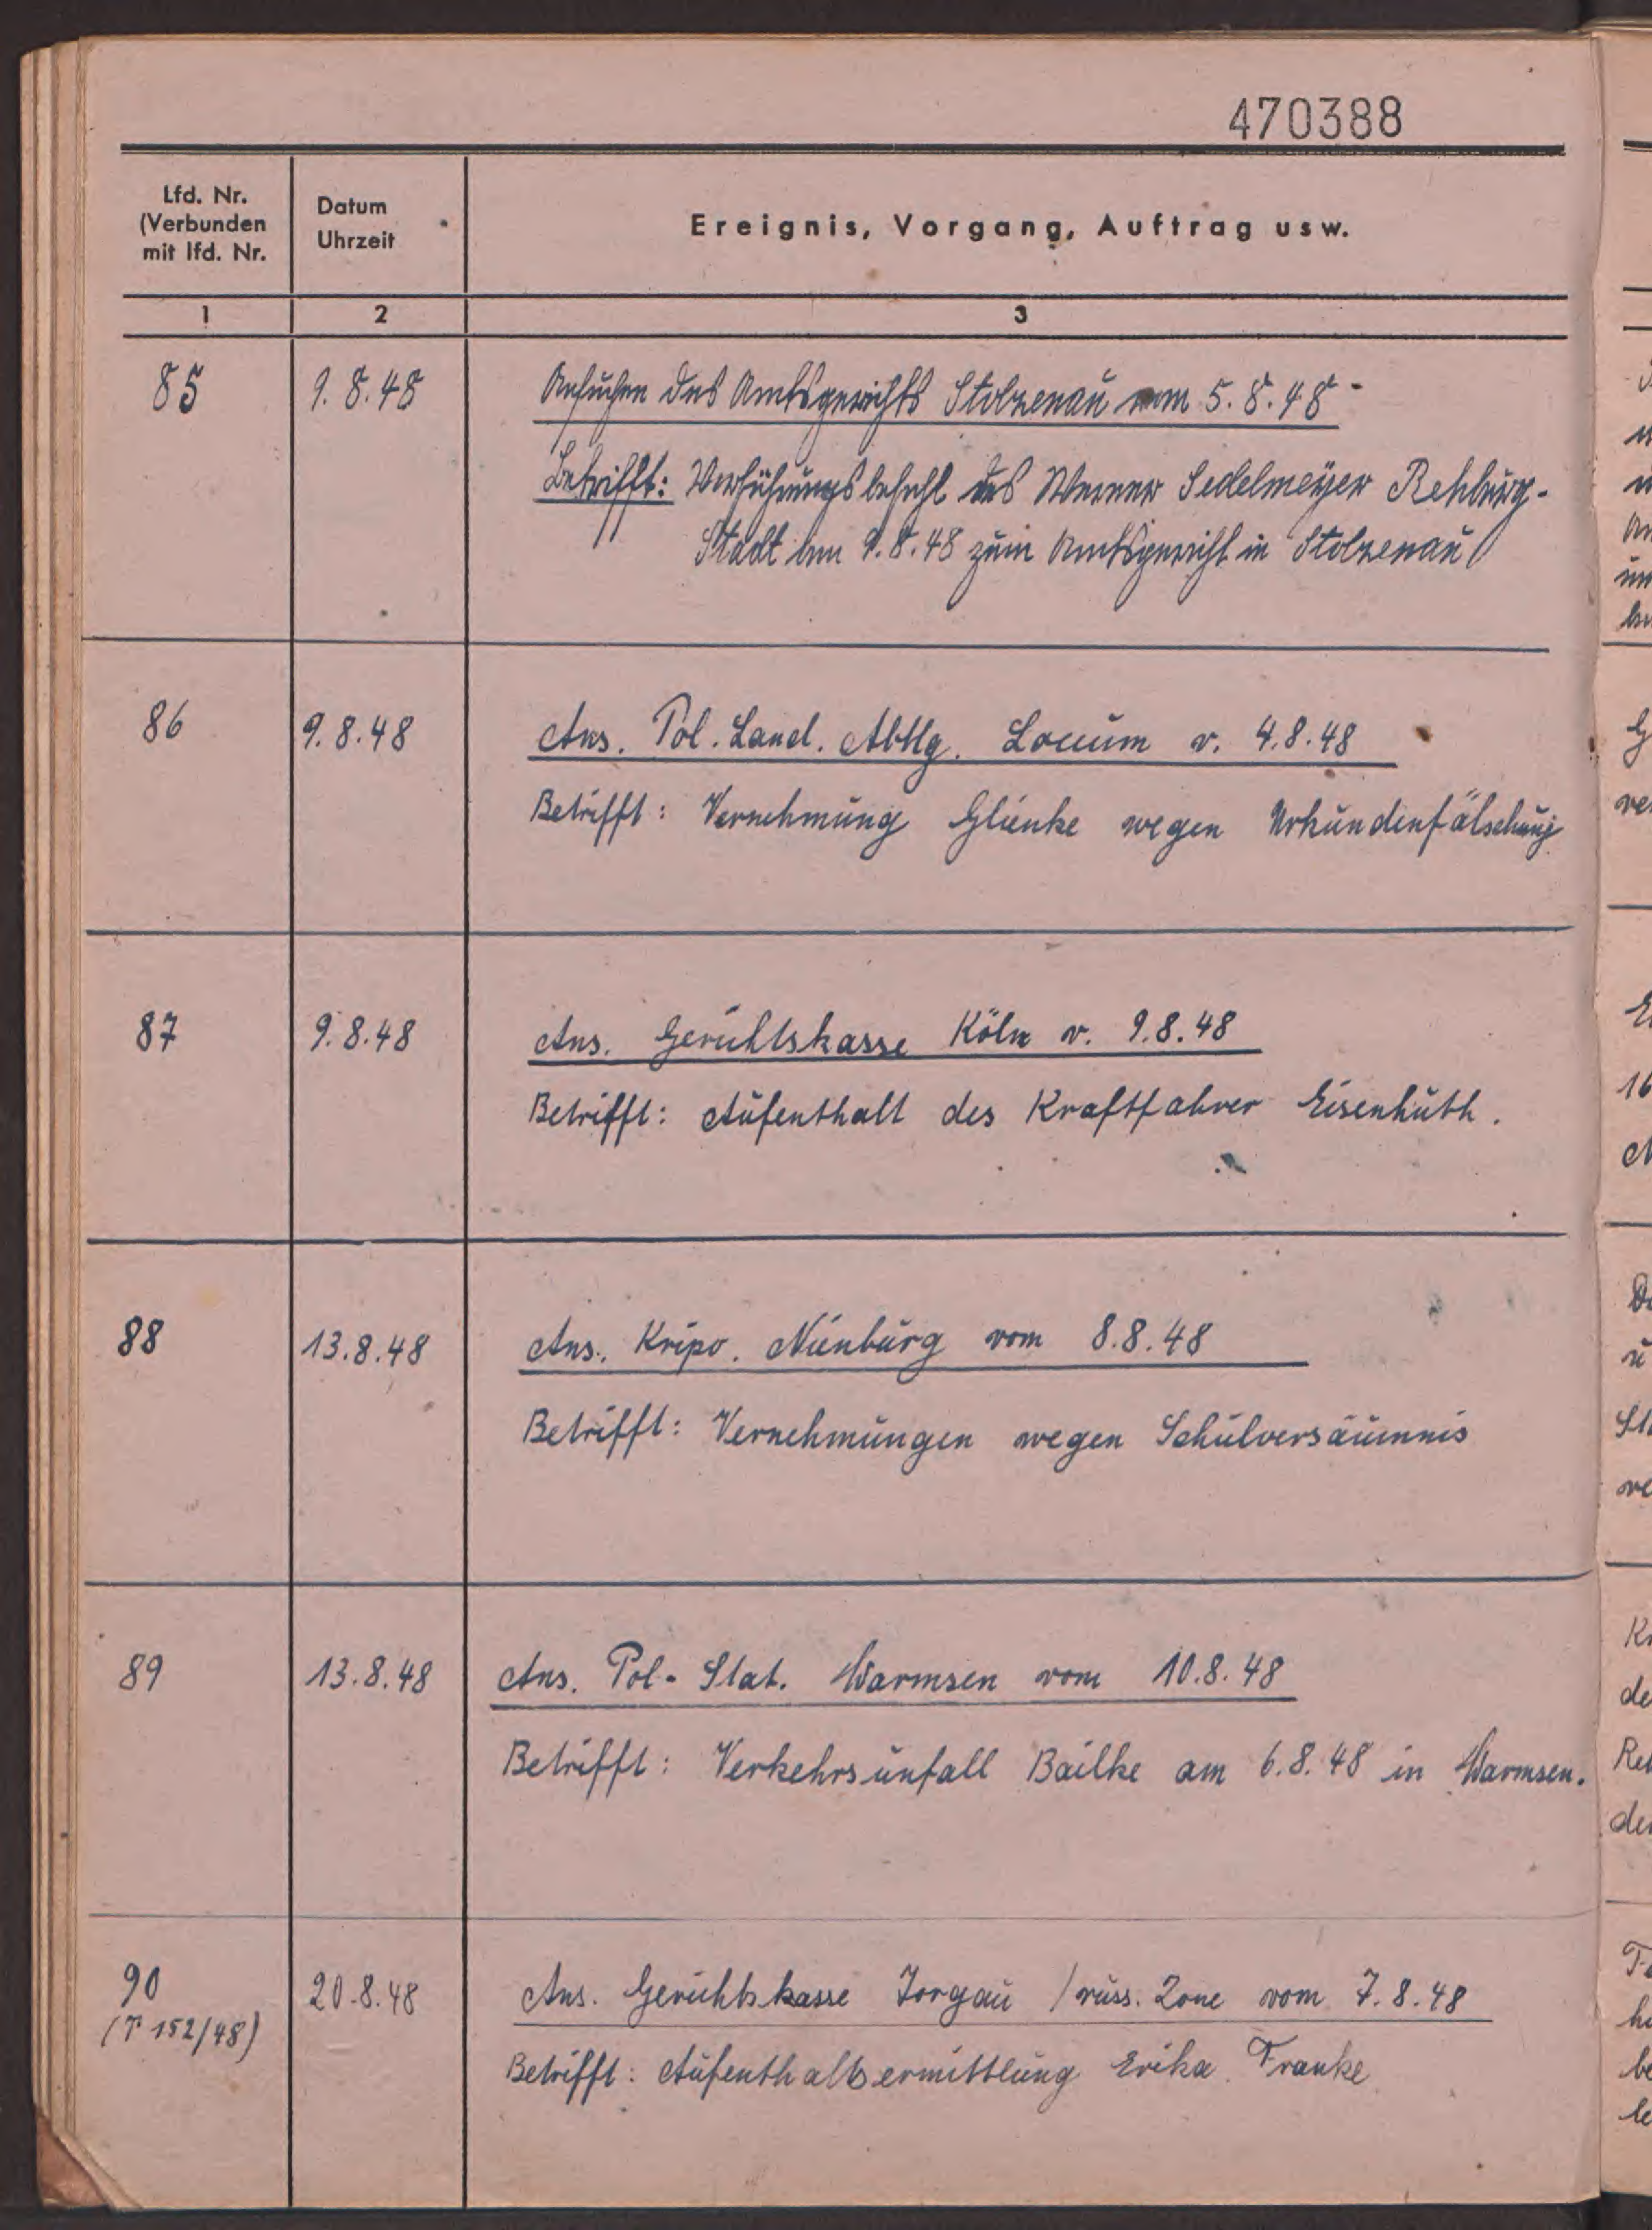 470388
Lfd. Nr.
(Verbunden
mit lfd. Nr.
Datum
Uhrzeit
Ereignis, Vorgang, Auftrag usw.
1 2 3
85 9.8.48 Ansuchen des Amtsgerichts Stolzenau vom 5.8.48
Betrifft: Vorführungsbefehl des Werner Sedelmeyer Rehburg-
Stadt am 9.8.48 zum Amtsgericht in Stolzenau
86 9.8.48 Ans. Pol. Land. Abtlg. Loccum v. 4.8.48
Betrifft: Vernehmung Glienke wegen Urkundenfälschung
87 9.8.48 Ans. Gerichtskasse Köln v. 9.8.48
Betrifft: Aufenthalt des Kraftfahrer Eisenhuth.
88 13.8.48 Ans. Kripo. Nienburg vom 8.8.48
Betrifft: Vernehmungen wegen Schulversäumnis
89 13.8.48 Ans. Pol-Stat. Warmsen vom 10.8.48
Betrifft: Verkehrsunfall Bailke am 6.8.48 in Warmsen.
90 20.8.48 Ans. Gerichtskasse Torgau /russ. Zone vom 7.8.48
(T 152/48)
Betrifft: Aufenthaltsermittlung Erika Franke